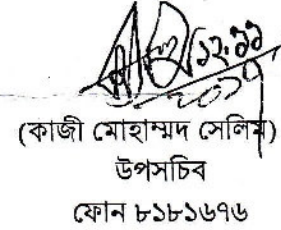 ১২.১১
(কাজী মোহাম্মদ সেলিম)
উপসচিব
ফোন ৮১৮১৬৭৬